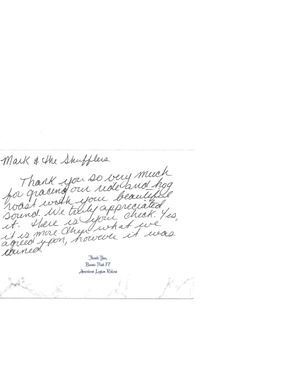 Mark & the Shufflers
Thank you so very much
for gracing our ride and hog
roast with your beautiful
sound We truly appreciated
it. Here is your check. Yes,
it is more then what we
agreed upon, however it was
earned
Thank You,
Post
American Legion Riders